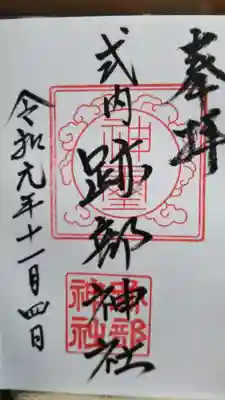 奉拝
式内 跡部神社
令和元年十一月四日
跡部神社